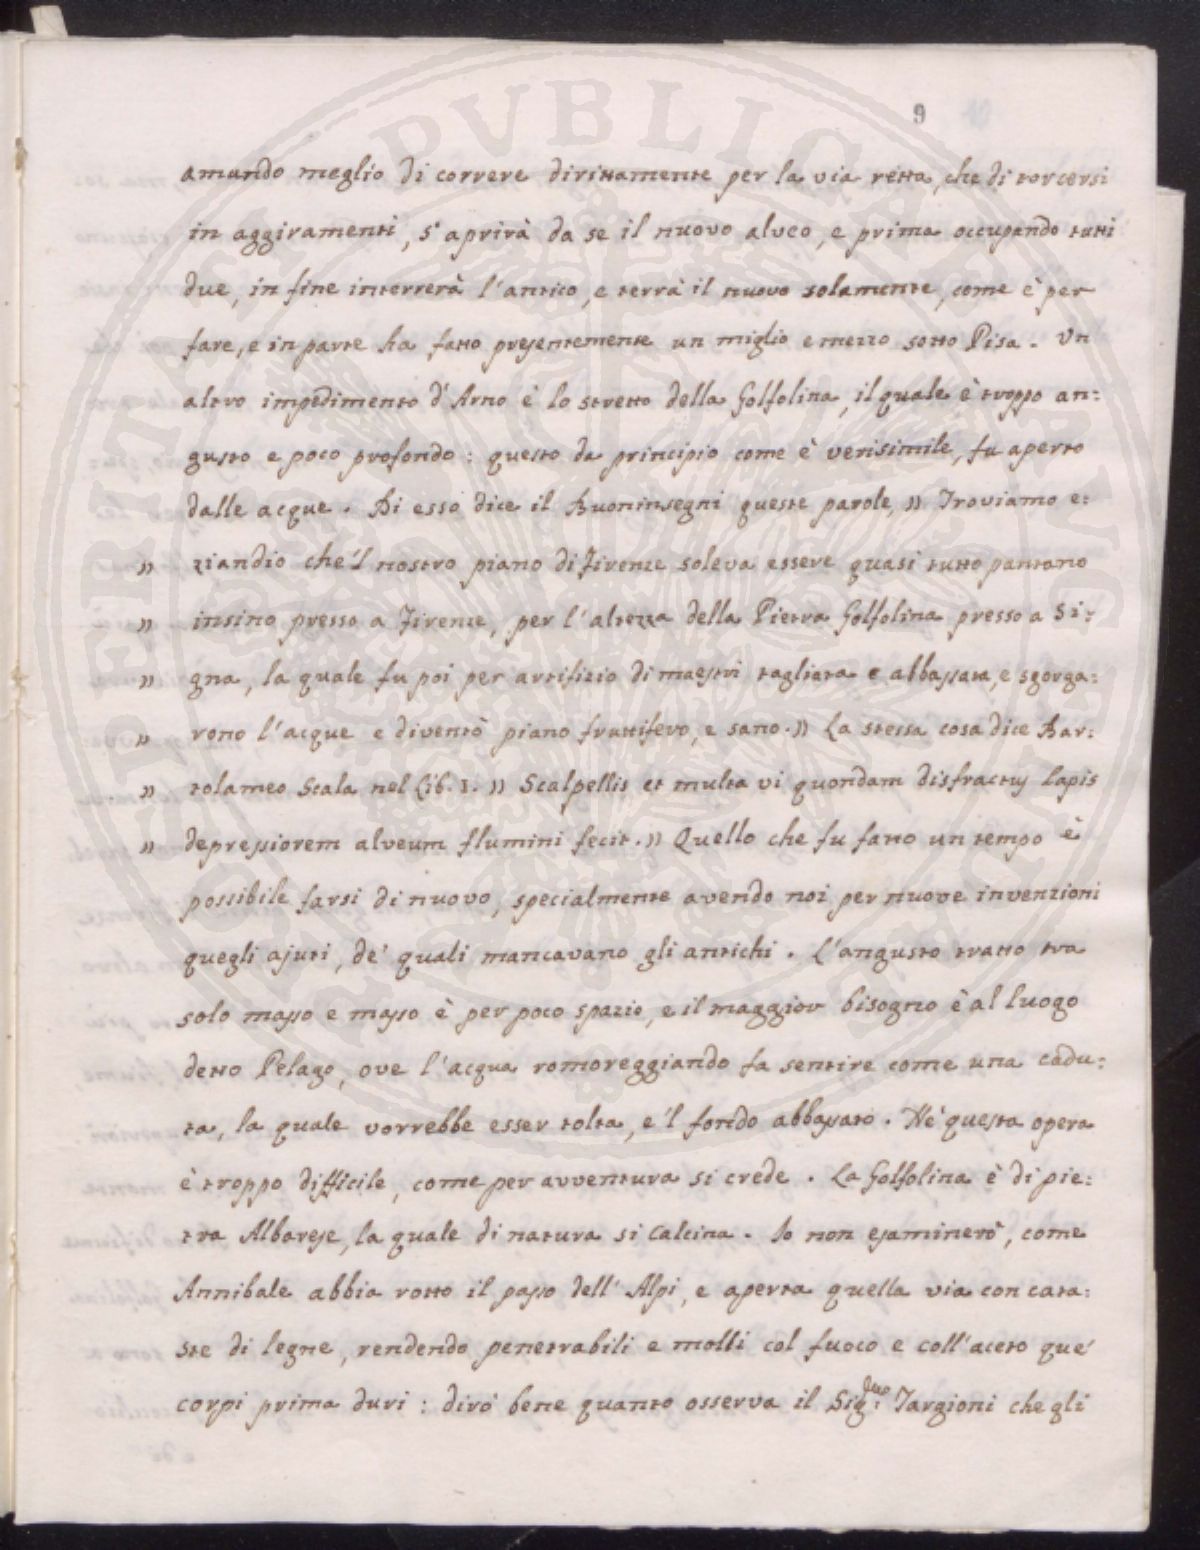 PERITAT PUBLICAE AUGENDAE PROSPERITATI
9 10
amando meglio di correre dirittamente per la via retta, che di torcersi
in aggiramenti, s'aprirà da se il nuovo alveo, e prima occupando tutti
due, in fine interrerà l'antico, e terrà il nuovo solamente, come è per
fare, e in parte ha fatto presentemente un miglio e mezzo sotto Pisa. Un
altro impedimento d'Arno è lo stretto della Golfolina, il quale è troppo an:
gusto e poco profondo: questo da principio come è verisimile, fu aperto
dalle acque. Di esso dice il Buoninsegni queste parole, " Troviamo e:
" ziandio che'l nostro piano di Firenze soleva essere quasi tutto pantano
" insino presso a Firenze, per l'altezza della Pietra Golfolina presso a Si:
" gna, la quale fu poi per artifizio di maestri tagliata e abbassata, e sgorga:
" rono l'acque e diventò piano fruttifero, e sano. " La stessa cosa dice Bar:
" tolameo Scala nel Lib. 1. " Scalpellis et multa vi quondam disfractus Lapis
" depressiorem alveum flumini fecit. " Quello che fu fatto un tempo è
possibile farsi di nuovo, specialmente avendo noi per nuove invenzioni
quegli ajuti, de' quali mancavano gli antichi. L'angusto tratto tra
solo masso e masso è per poco spazio, e il maggior bisogno è al luogo
detto Pelago, ove l'acqua romoreggiando fa sentire come una cadu:
ta, la quale vorrebbe esser tolta, e'l fondo abbassato. Nè questa opera
è troppo difficile, come per avventura si crede. La Golfolina è di pie:
tra Albarese, la quale di natura si Calcina. Io non esaminerò, come
Annibale abbia rotto il passo dell'Alpi, e aperta quella via con cata:
ste di legne, rendendo penetrabili e molli col fuoco e coll'aceto que'
corpi prima duri: dirò bene quanto osserva il Sig. Targioni che gli